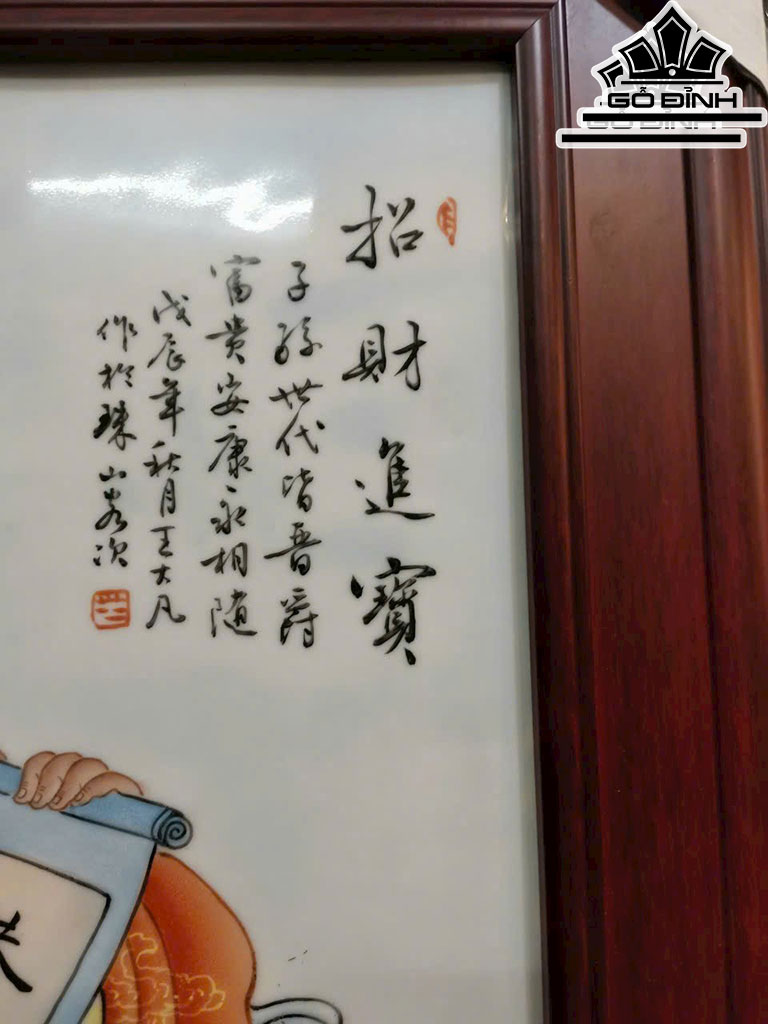 招財進寶
子孫世代皆晋爵
富貴安康永相随
戊辰年秋月王大凡
作於珠山客次
GỖ ĐỈNH